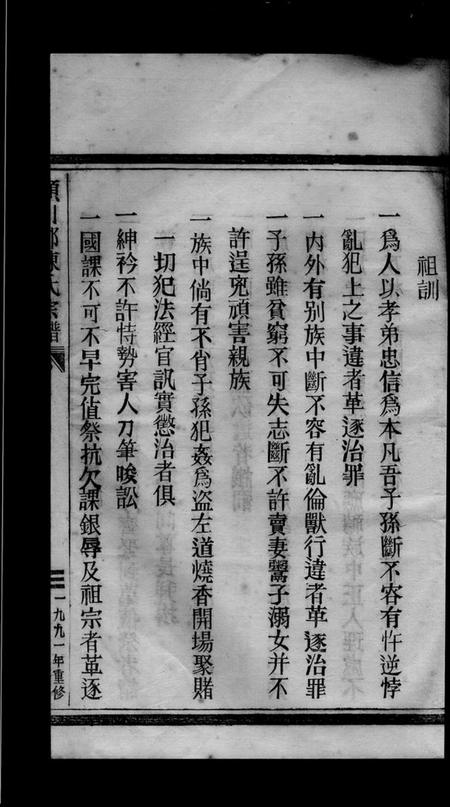 祖訓
一爲人以孝弟忠信爲本凡吾子孫斷不容有忤逆悖
亂犯上之事違者革逐治罪
一內外有別族中斷不容有亂倫獸行違者革逐治罪
一子孫雖貧窮不可失志斷不許賣妻鬻子溺女并不
許逞兇頑害親族
一族中倘有不肖子孫犯姦爲盜左道燒香開場聚賭
一切犯法經官訊實懲治者俱
一紳衿不許恃勢害人刀筆唆訟
一國課不可不早完值祭抗欠課銀辱及祖宗者革逐
潁川郡陳氏宗譜
一九九一年重修